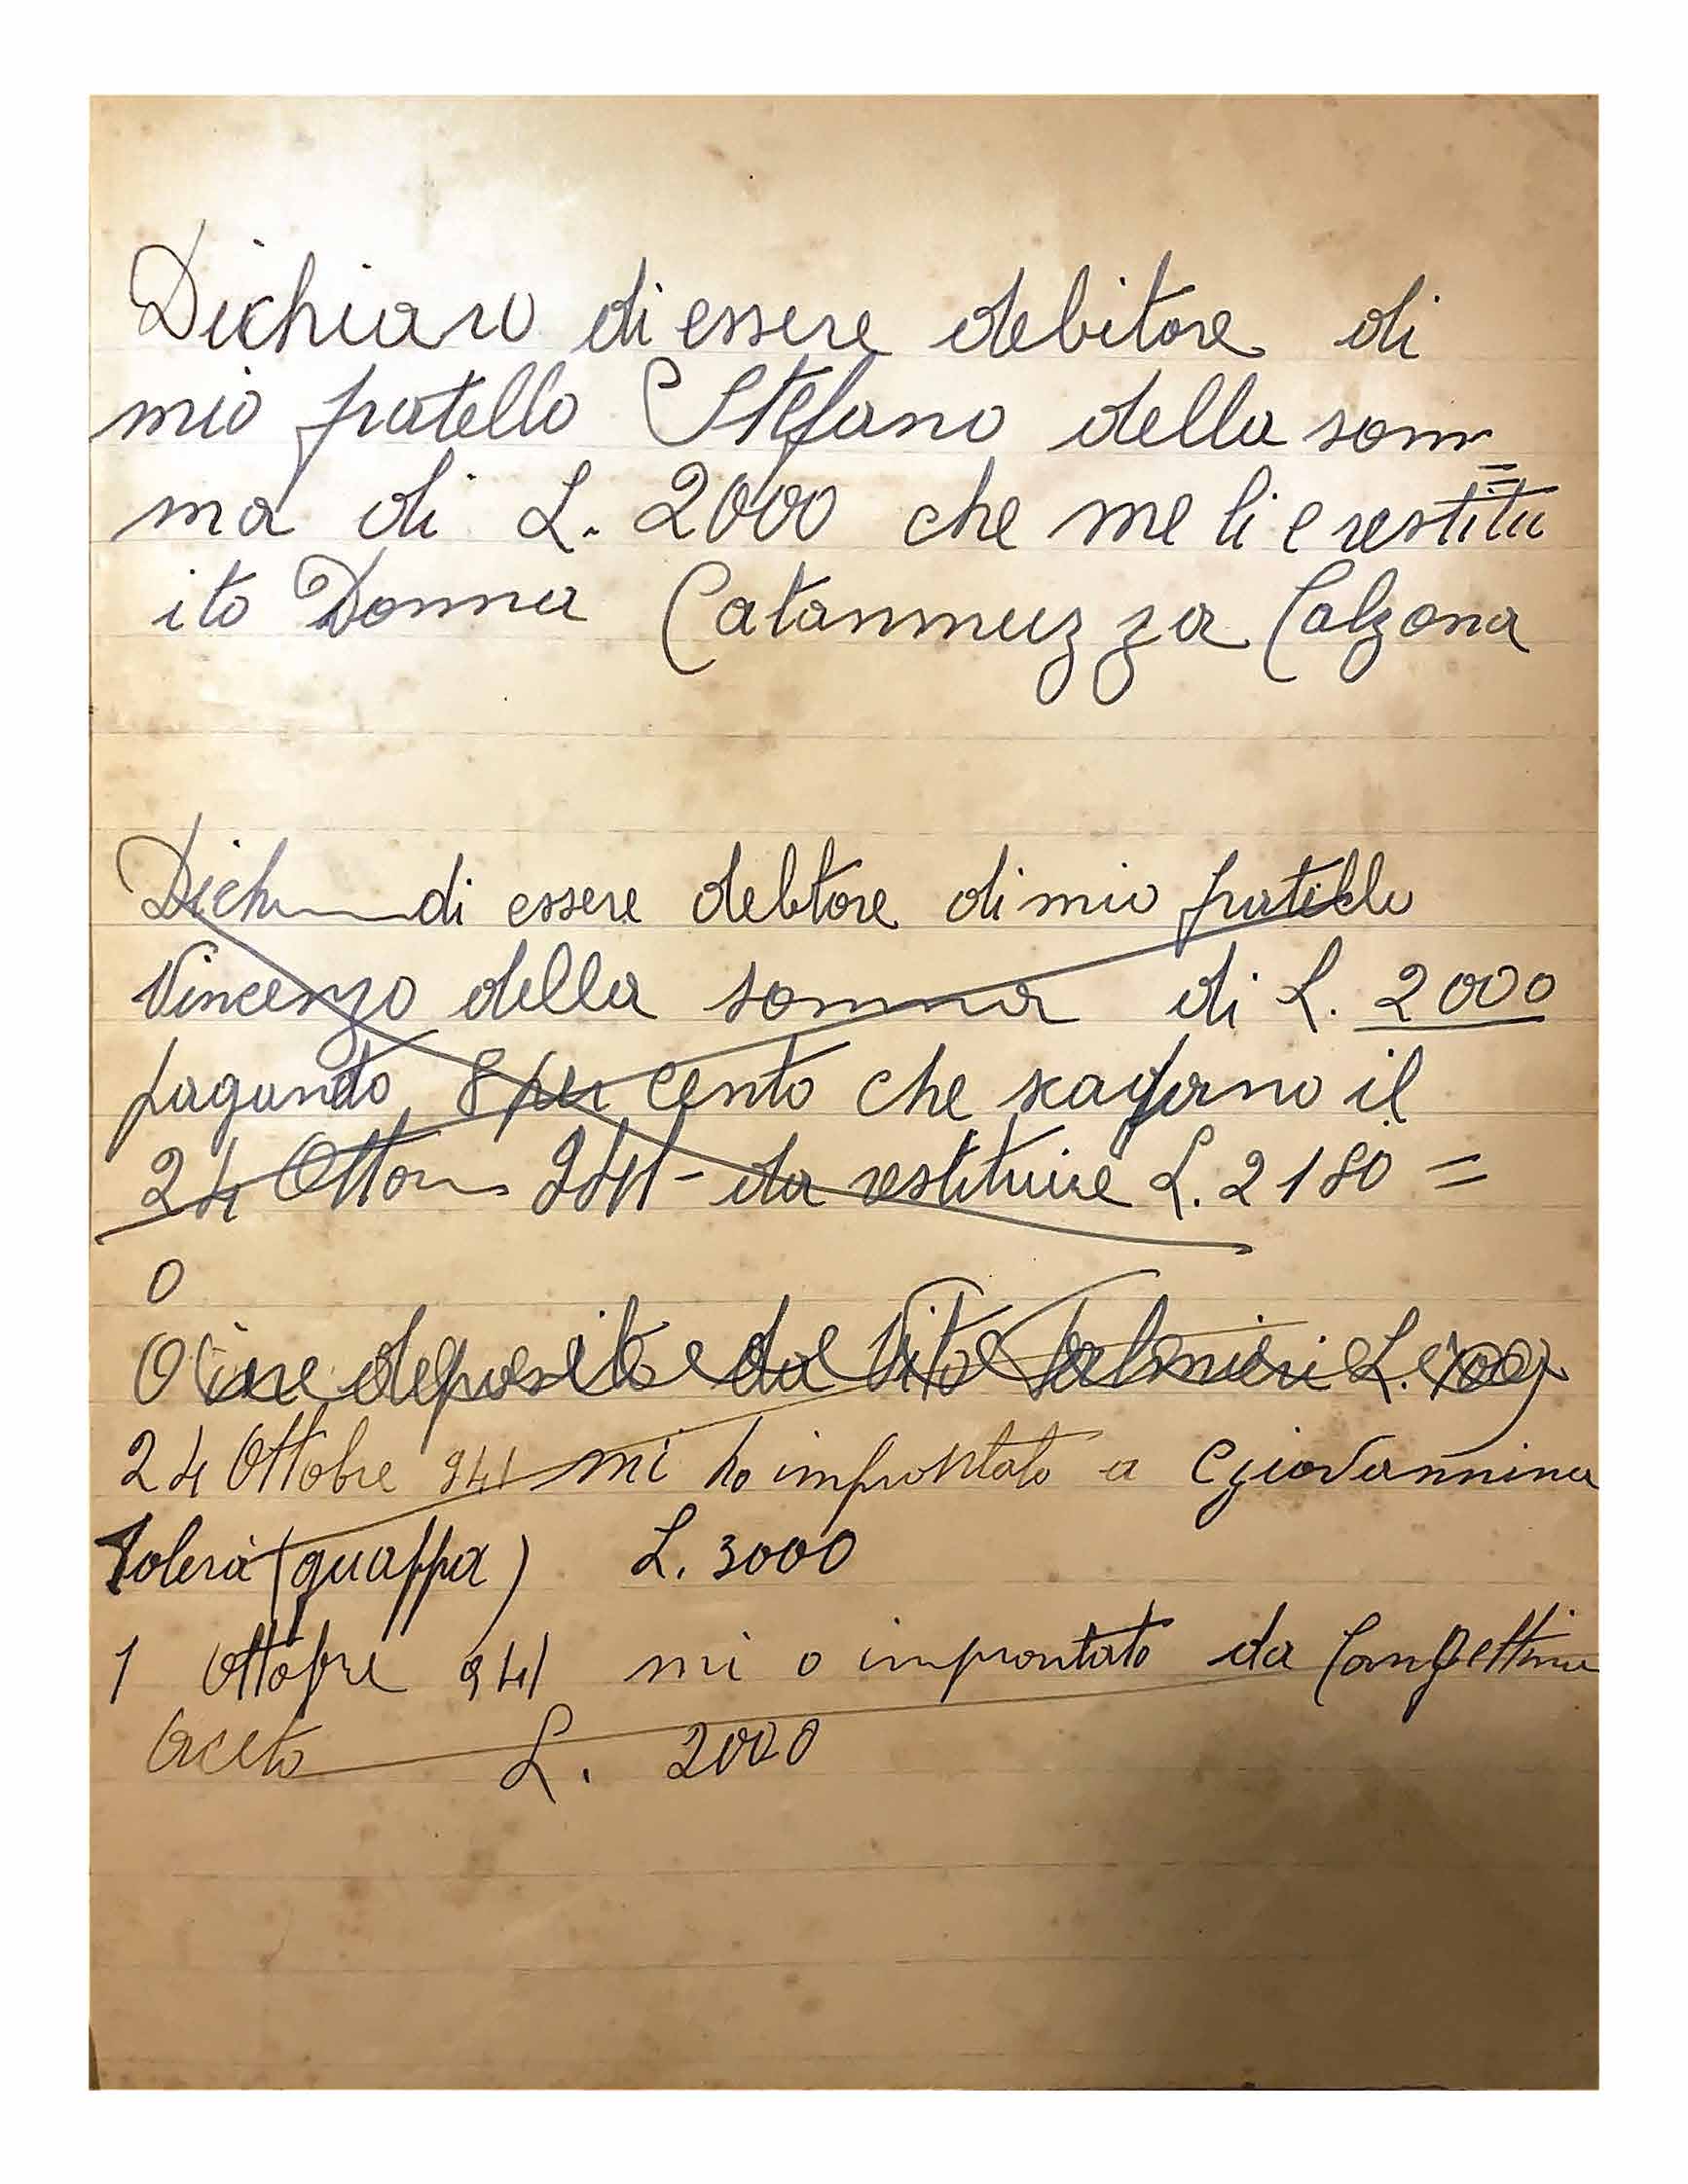 Dichiaro di essere debitore di
mio fratello Stefano della som=
ma di L. 2000 che me li e restitu
ito Donna Catanmuzza Calzona
Dich di essere debtore di mio fratello
Vincenzo della somma di L. 2000
pagando 8 per cento che scadono il
24 Ottom 941 - da restituire L. 2180 =
0
deposito da Vito Palmieri L.
24 Ottobre 941 mi ho improntato a Giovannina
(quappa) L. 3000
1 Ottobre 941 mi o improntato da
Aceto L. 2000